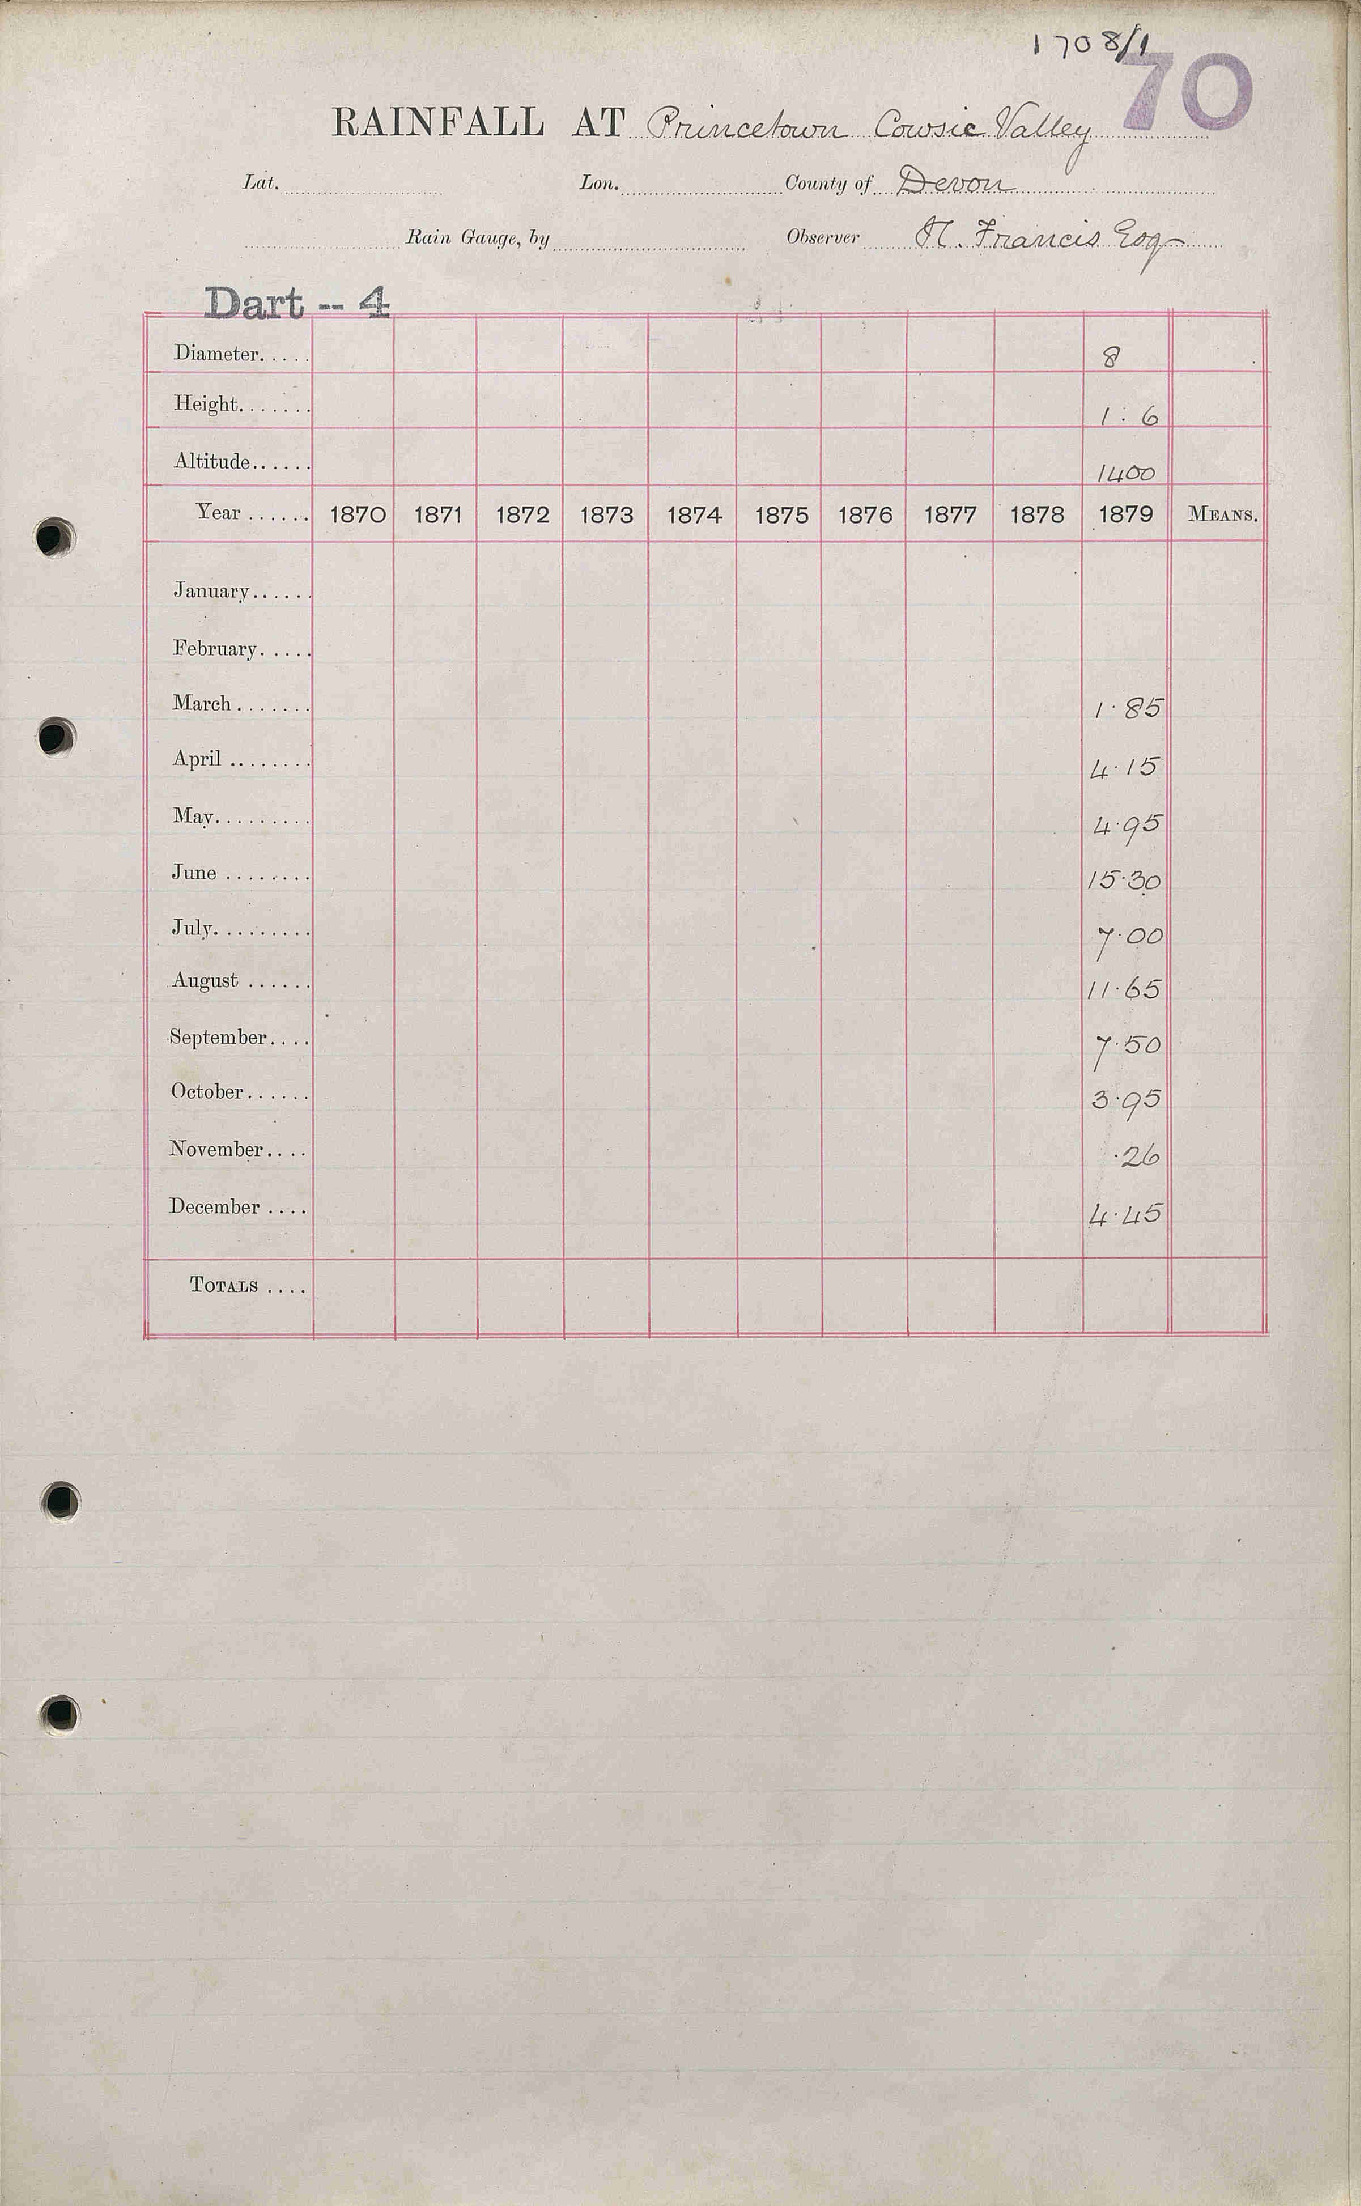 1708/1
70
RAINFALL AT Princetown Cowsic Valley
Lat. Lon. County of Devon
Rain Gauge, by Observer H. Francis Esq
Dart -- 4
Diameter..... 8
Height....... 1 : 6
Altitude...... 1400
Year ...... 1870 1871 1872 1873 1874 1875 1876 1877 1878 1879 MEANS.
January......
February.....
March ....... 1·85
April ........ 4·15
May......... 4·95
June ........ 15·30
July......... 7·00
August ...... 11·65
September.... 7·50
October...... 3·95
November.... ·26
December .... 4·45
TOTALS ....